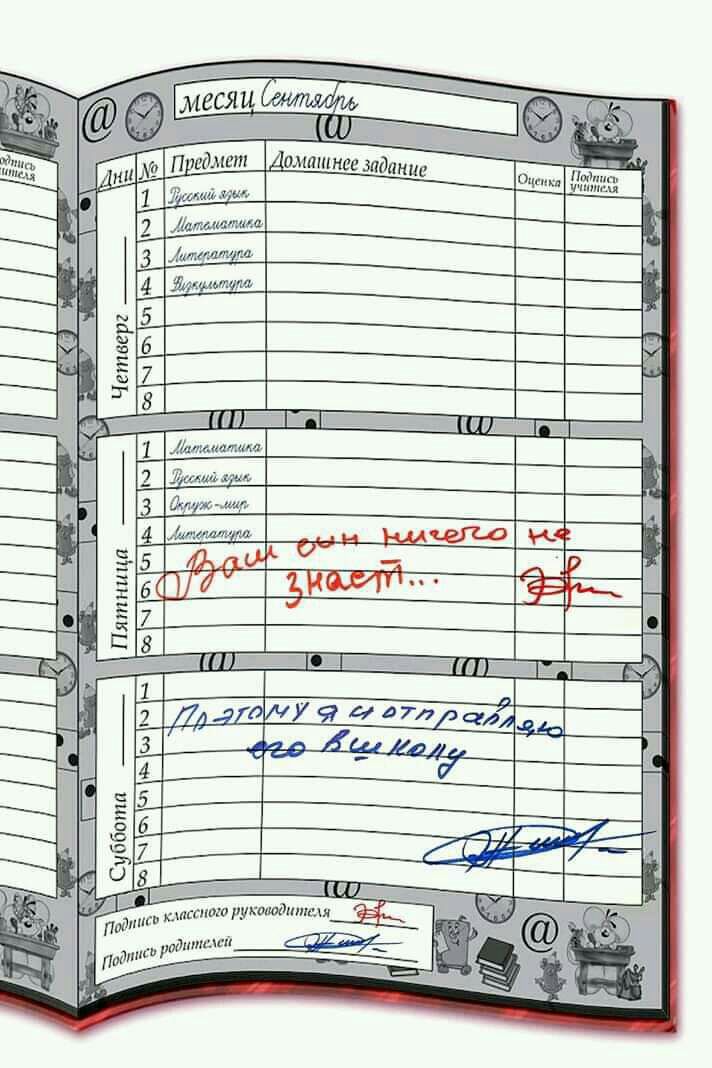 месяц Сентябрь
Дни № Предмет Домашнее задание Оценка Подпись учителя
Четверг
1 Русский язык
2 Математика
3 Литература
4 Физкультура
5
6
7
8
Пятница
1 Математика
2 Русский язык
3 Окруж-мир
4 Литература
5
6
7
8
Ваш сын ничего не
знает...
Суббота
1
2
3
4
5
6
7
8
Поэтому я и отправляю
его в школу
Подпись классного руководителя
Подпись родителей